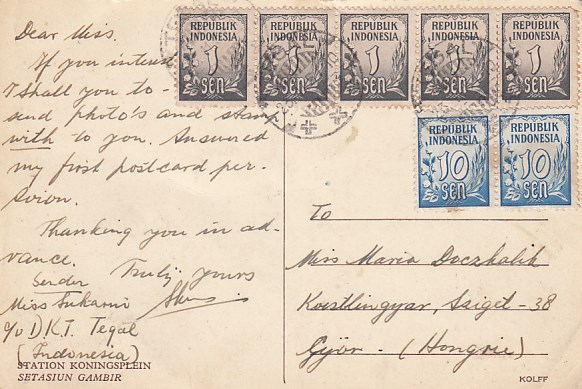 Dear Miss.
If you intend
I shall you to-
send photo's and stamp
with to you. Answered
my first postcard per-
avion.
Thanking you in ad-
vance.
Truly yours
Sender
Miss Sukarni
c/o D.K.T. Tegal
(Indonesia)
STATION KONINGSPLEIN
SETASIUN GAMBIR
REPUBLIK INDONESIA
1
SEN
REPUBLIK INDONESIA
1
SEN
REPUBLIK INDONESIA
1
SEN
REPUBLIK INDONESIA
1
SEN
REPUBLIK INDONESIA
1
SEN
REPUBLIK INDONESIA
10
SEN
REPUBLIK INDONESIA
10
SEN
To
Miss Maria Doczkalik
Koestlingyar, Sziget-38
Györ. - (Hongrie)
KOLFF